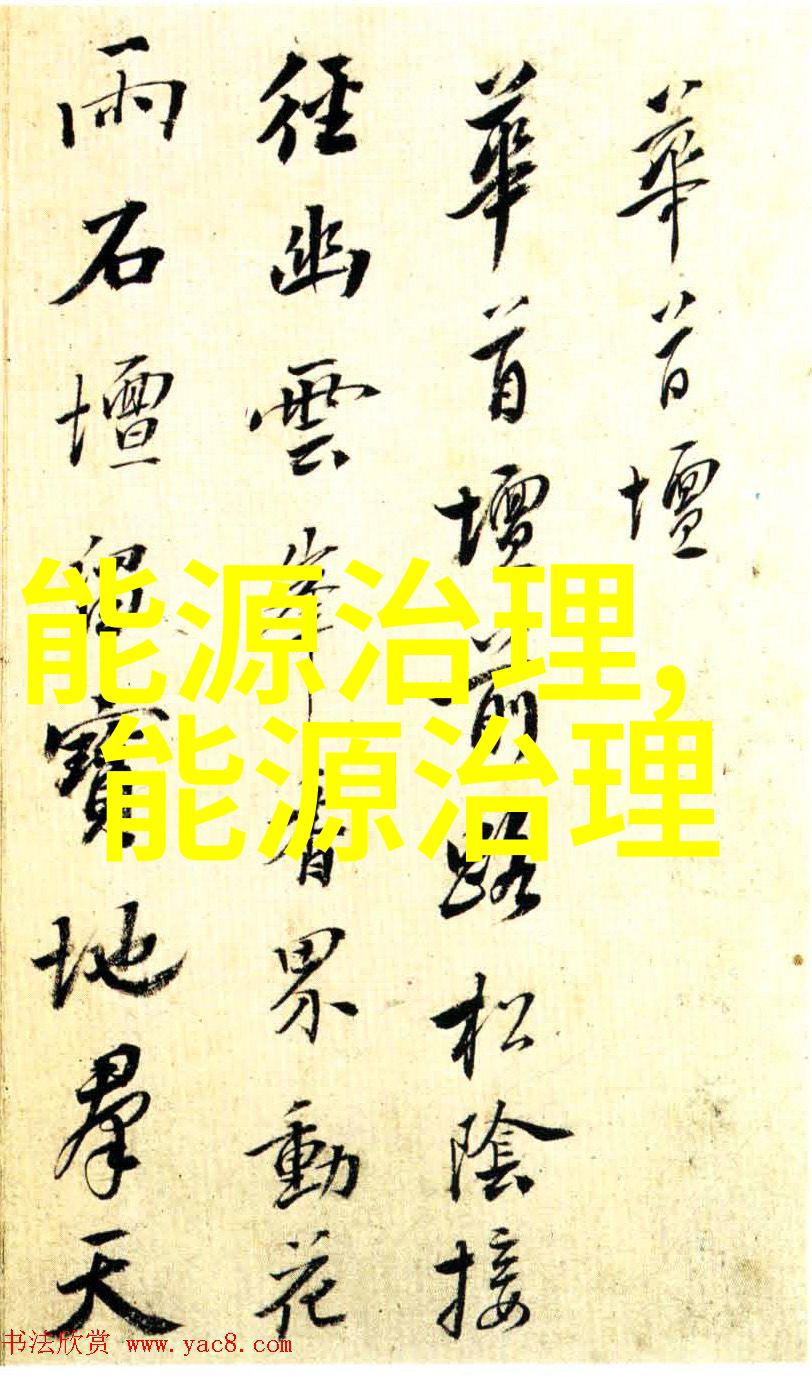 華首壇
華首壇前路松陰接
徑幽雲峰香界動花
雨石壇留寶地羣天
能源治理,
能源治理
书法欣赏 www.yac8.com